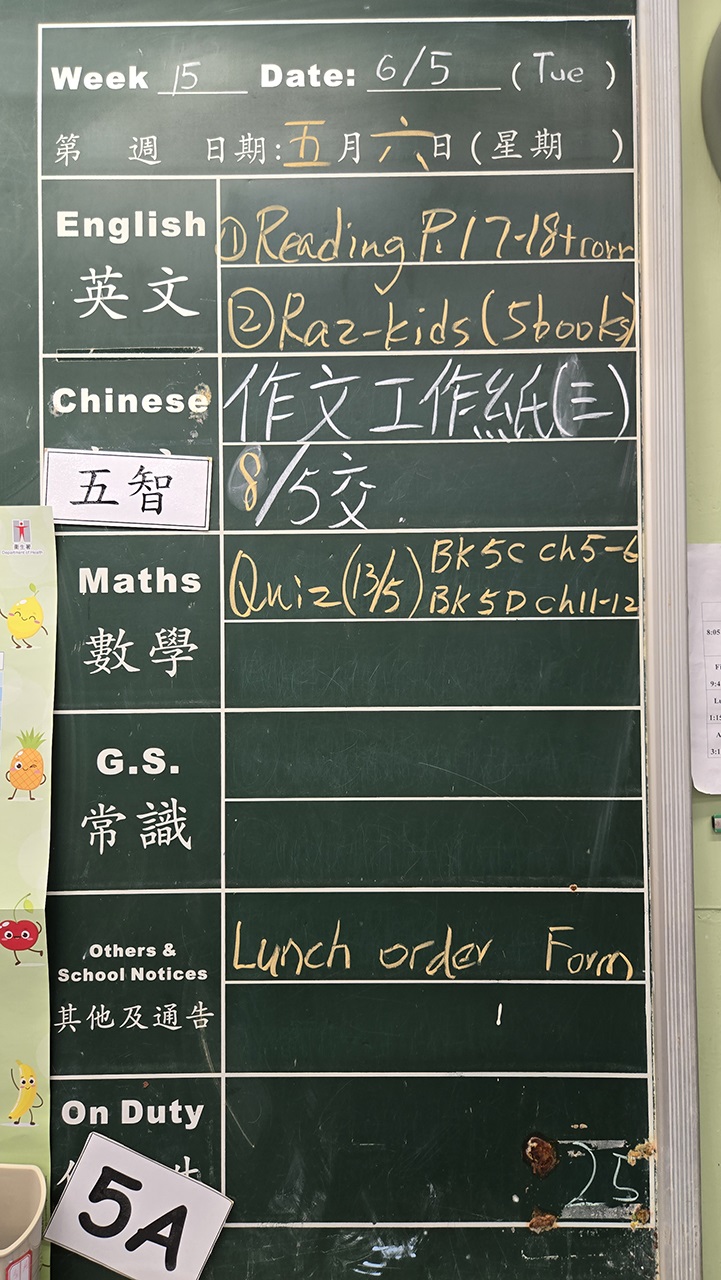 Week 15 Date: 6/5 (Tue)
第 週 日期:五月六日(星期 )
English
英文
①Reading P.17-18+corr
②Raz-kids(5books)
Chinese
作文工作紙(三)
五智
8/5交.
Maths
數學
Quiz(13/5) BK5C ch5-6
BK5D ch11-12
G.S.
常識
Others &
School Notices
其他及通告
Lunch order Form
1
On Duty
生
5A
25
衞生署
Department of Health
8:05
9:4
1:15
3:1